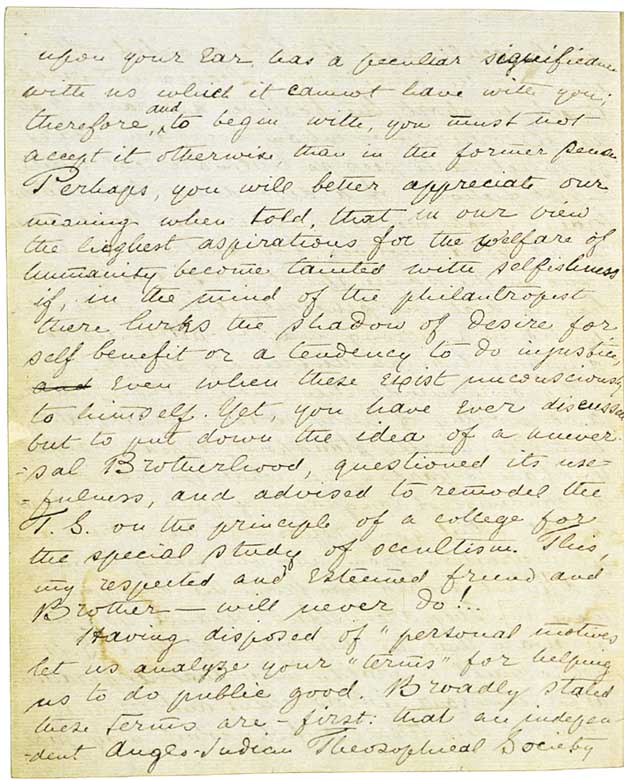 upon your ear has a peculiar significance
with us which it cannot have with you;
therefore, and to begin with, you must not
accept it otherwise, than in the former sense.
Perhaps, you will better appreciate our
meaning when told, that in our view
the highest aspirations for the welfare of
humanity become tainted with selfishness
if, in the mind of the philantropist
there lurks the shadow of desire for
self benefit or a tendency to do injustice,
and even when these exist unconsciously
to himself. Yet, you have ever discussed
but to put down the idea of a univer-
-sal Brotherhood, questioned its use-
-fulness, and advised to remodel the
T. S. on the principle of a college for
the special study of occultism. This,
my respected and esteemed friend and
Brother — will never do!..
Having disposed of "personal motives
let us analyze your "terms" for helping
us to do public good. Broadly stated
these terms are – first: that an indepen-
-dent Anglo-Indian Theosophical Society